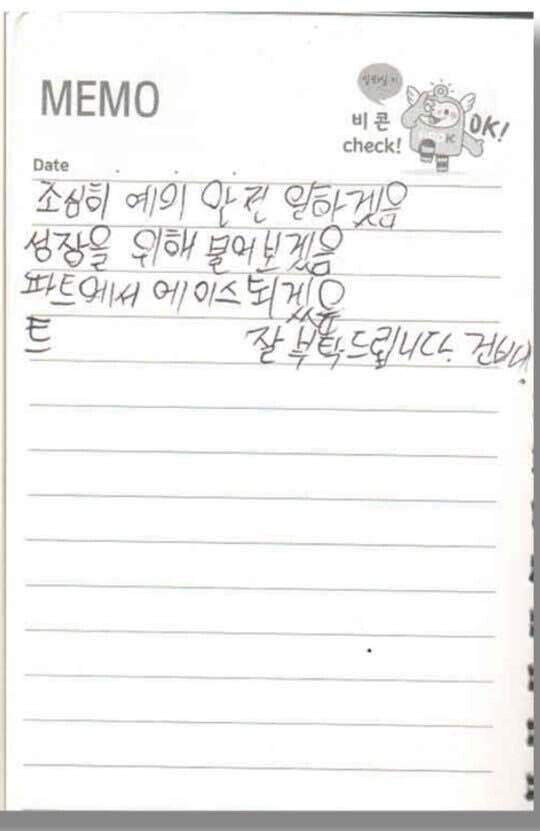 MEMO
비콘
check!
OK!
Date
조심히 예의 안전 일하겠음
성장을 위해 물어보겠음
파트에서 에이스되겠음
트 잘 부탁드립니다. 건배.